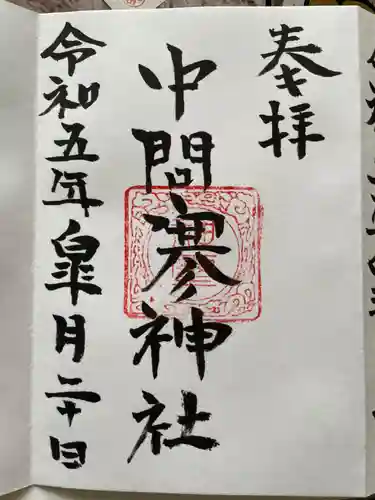 奉拝
中問寥神社
令和五年皐月二十日